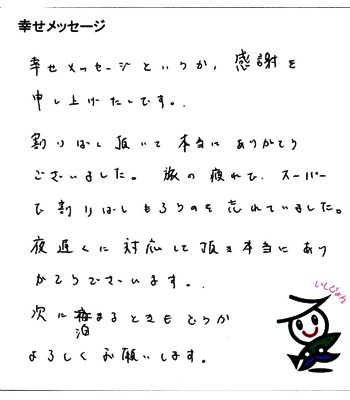 幸せメッセージ
幸せメッセージというか，感謝を
申し上げたいです。
割りばし頂いて本当にありがとう
ございました。旅の疲れで、スーパー
で割りばしもらうのを忘れていました。
夜遅くに対応して頂き本当にあり
がとうございます。
次に泊まるときもどうか
よろしくお願いします。
いしじょん